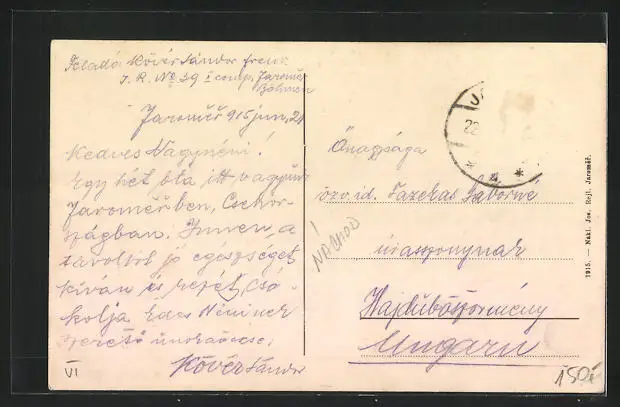 Feladó Kővér Sándor frenk
J. R. No 39 I comp. Jaroměř
Böhmen
Jaroměř 915 jun. 21
Kedves Nagynéni!
Egy hét óta itt vagyunk
Jaroměřben, Csehor-
szágban. Innen, a
távolból jó egészséget
kíván és kezét, Csó-
kolja Edes Néninek
szerető unokaöccse:
Kővér Sándor
VI
Önagysága
özv. id. Fazekas Gáborné
úrasszonynak
Hajdúböszörmény
Ungarn
NÁCHOD
22
1915. — Nakl. Jos. Rejl, Jaroměř.
150